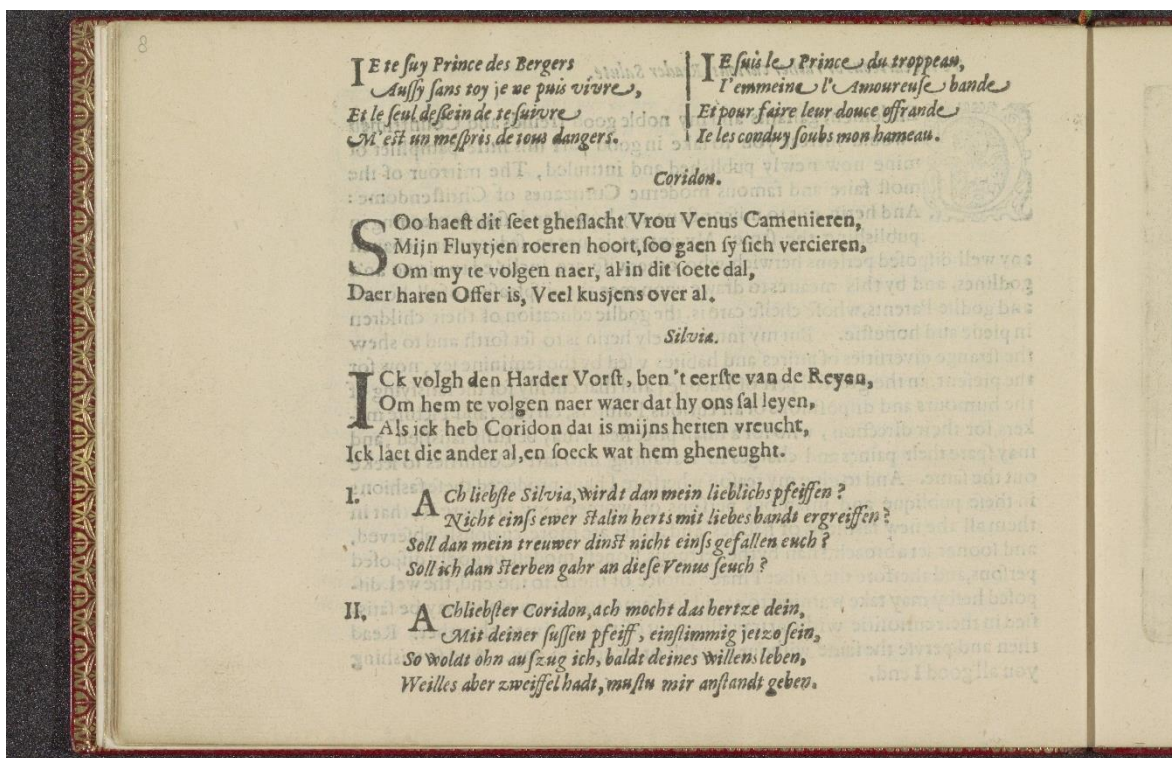 8
IE te suy Prince des Bergers
Aussy sans toy je ne puis vivre,
Et le seul dessein de te suivre
M'est un mespris de tous dangers.
IE suis le Prince du troppeau,
I'emmeine l'Amoureuse bande
Et pour faire leur douce offrande
Ie les conduy soubs mon hameau.
Coridon.
SOo haest dit seet gheslacht Vrou Venus Camenieren,
Mijn Fluytien roeren hoort, soo gaen sy sich vercieren,
Om my te volgen naer, al in dit soete dal,
Daer haren Offer is, Veel kusjens over al.
Silvia.
ICk volgh den Harder Vorst, ben 't eerste van de Reyen,
Om hem te volgen naer waer dat hy ons sal leyen,
Als ick heb Coridon dat is mijns herten vreucht,
Ick laet die ander al, en soeck wat hem gheneught.
I. ACh liebste Silvia, wirdt dan mein lieblichs pfeiffen?
Nicht eins ewer stalin herts mit liebes bandt ergreiffen?
Soll dan mein treuwer dinst nicht eins gefallen euch?
Soll ich dan sterben gahr an diese Venus seuch?
II. AChliebster Coridon, ach mocht das hertze dein,
Mit deiner sussen pfeiff, einstimmig jetzo sein,
So woldt ohn aufzug ich, baldt deines willens leben,
Weilles aber zweiffel hadt, mustu mir anstandt geben.